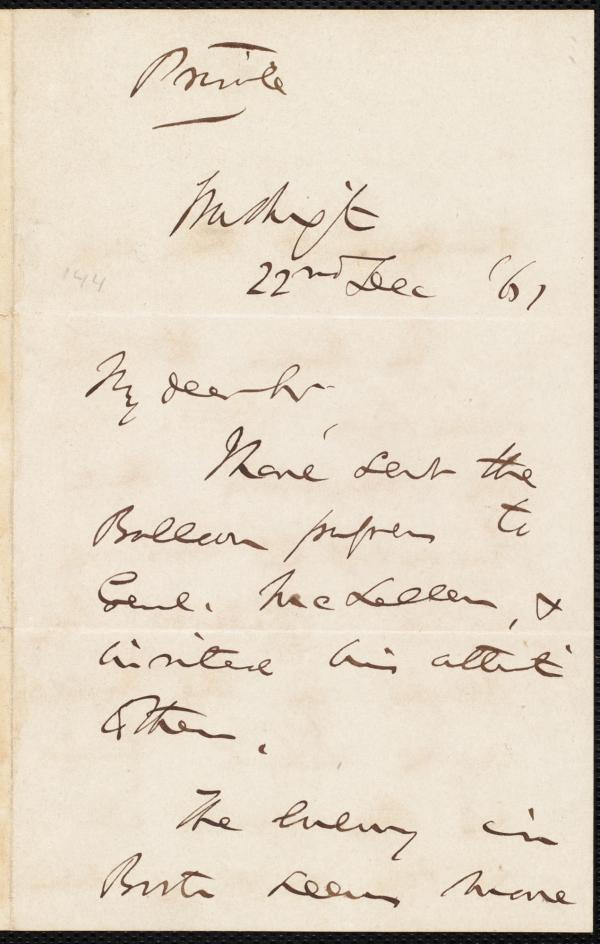 Private
Washingt
22nd Dec '61
144
My dear Sir
I have sent the
Balloon papers to
Genl. McLellan, &
invited his attent
to them.
The enemy in
seems more